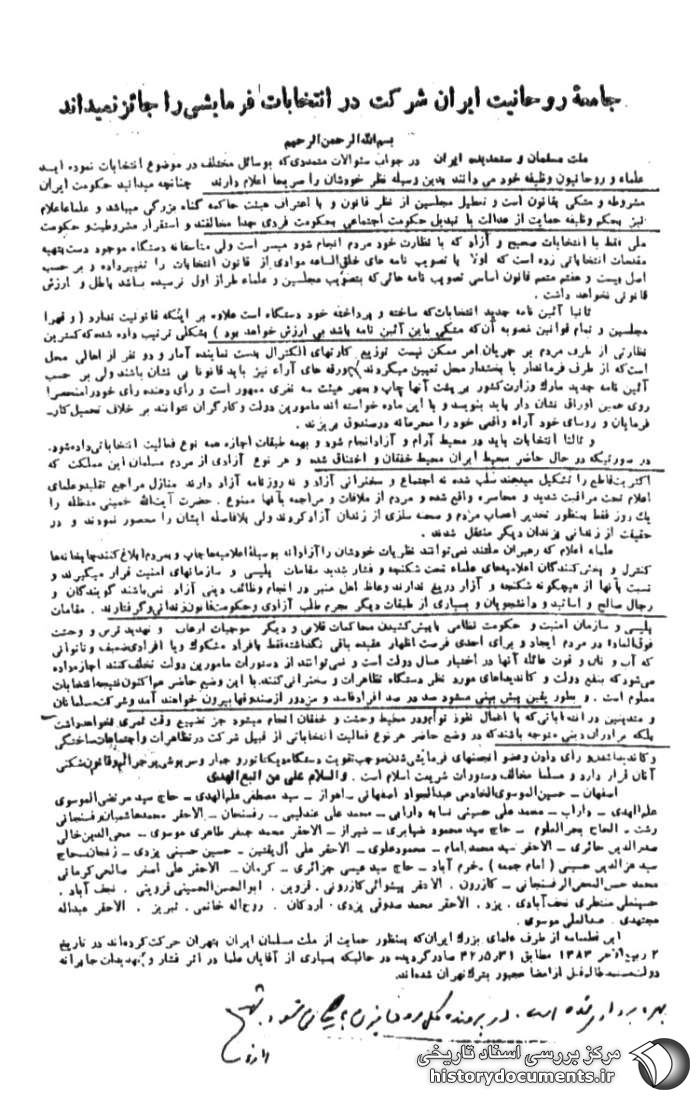 جامعهٔ روحانیت ایران شرکت در انتخابات فرمایشی را جائز نمیداند
بسم‌الله الرحمن الرحیم
ملت مسلمان و ستمدیده ایران در جواب سئوالات متعددی که بوسائل مختلف در موضوع انتخابات نموده اید
علماء و روحانیون وظیفه خود می دانند بدین وسیله نظر خودشان را صریحا اعلام دارند چنانچه میدانید حکومت ایران
مشروطه و متکی بقانون است و تعطیل مجلسین از نظر قانون و با اعتراف هیئت حاکمه گناه بزرگی میباشد و علماء اعلام
نیز بحکم وظیفه حمایت از عدالت با تبدیل حکومت اجتماعی بحکومت فردی جدا مخالفتند و استقرار مشروطیت و حکومت
ملی فقط با انتخابات صحیح و آزاد که با نظارت خود مردم انجام شود میسر است ولی متاسفانه دستگاه موجود دست بتهیه
مقدمات انتخاباتی زده است که اولا با تصویب نامه های خلق‌الساعه موادی از قانون انتخابات را تغییر داده و بر حسب
اصل بیست و هفتم متمم قانون اساسی تصویب نامه هائی که بتصویب مجلسین و علماء طراز اول نرسیده باشد باطل و ارزش
قانونی نخواهد داشت .
ثانیا آئین نامه جدید انتخابات که ساخته و پرداخته خود دستگاه است علاوه بر اینکه قانونیت ندارد ( و قهرا
مجلسین و تمام قوانین مصوبه آن که متکی باین آئین نامه باشد بی ارزش خواهد بود ) بشکلی ترتیب داده شده که کمترین
نظارتی از طرف مردم بر جریان امر ممکن نیست توزیع کارتهای الکترال بدست نماینده آمار و دو نفر از اهالی محل
است که از طرف فرماندار یا بخشدار محل تعیین میگردند ورقه های آراء نیز باید قانونا بی نشان باشند ولی بر حسب
آئین نامه جدید مارک وزارت کشور بر پشت آنها چاپ و بمهر هیئت سه نفری ممهور است و رأی دهنده رأی خود را منحصرا
روی همین اوراق نشان دار باید بنویسد و با این ماده خواسته اند مامورین دولت و کارگران نتوانند بر خلاف تحمیل کار-
فرمایان و روسای خود آراء واقعی خود را محرمانه در صندوق بریزند .
و ثالثا انتخابات باید در محیط آرام و آزاد انجام شود و بهمه طبقات اجازه همه نوع فعالیت انتخاباتی داده شود.
در صورتیکه در حال حاضر محیط ایران محیط خفقان و اختناق شده و هر نوع آزادی از مردم مسلمان این مملکت که
اکثریت قاطع را تشکیل میدهند سلب شده نه اجتماع و سخنرانی آزاد و نه روزنامه آزاد دارند منازل مراجع تقلید و علمای
اعلام تحت مراقبت شدید و محاصره واقع شده و مردم از ملاقات و مراجعه بآنها ممنوع . حضرت آیت‌الله خمینی مدظله را
یک روز فقط بمنظور تخدیر اعصاب مردم و صحنه سازی از زندان آزاد کردند ولی بلافاصله ایشان را محصور نمودند و در
حقیقت از زندانی بزندان دیگر منتقل شدند .
علماء اعلام که رهبران ملتند نمی توانند نظریات خودشان را آزادانه بوسیلهٔ اعلامیه‌ها چاپ و بمردم ابلاغ کنند چاپخانه‌ها
کنترل و پخش کنندگان اعلامیه‌های علماء تحت شکنجه و فشار شدید مقامات پلیسی و سازمانهای امنیت قرار میگیرند و
نسبت بآنها از هیچگونه شکنجه و آزار دریغ ندارند وعاظ اهل منبر در انجام وظائف دینی آزاد نمی‌باشند گویندگان و
رجال صالح و اساتید و دانشجویان و بسیاری از طبقات دیگر بجرم طلب آزادی و حکومت قانون زندانی و گرفتارند . مقامات
پلیسی و سازمان امنیت و حکومت نظامی با پیش کشیدن محاکمات قلابی و دیگر موجبات ارعاب و تهدید ترس و وحشت
فوق‌العاده در مردم ایجاد و برای احدی فرصت اظهار عقیده باقی نگذاشته فقط بافراد مشکوک و یا افرادی ضعیف و ناتوانی
که آب و نان و قوت عائله آنها در اختیار عمال دولت است و نمی توانند از دستورات مامورین دولت تخلف کنند اجازه داده
می‌شود که بنفع دولت و کاندیداهای مورد نظر دستگاه تظاهرات و سخنرانی کنند. با این وضع حاضر هم اکنون نتیجه انتخابات
معلوم است . و بطور یقین پیش بینی میشود صد در صد افراد فاسد و مزدور از صندوقها بیرون خواهند آمد و شرکت مسلمانان
و متدینین در انتخاباتی که با اعمال نفوذ توأم و در محیط وحشت و خفقان انجام میشود جز تضییع وقت ثمری نخواهد داشت
بلکه برادران دینی متوجه باشند که در وضع حاضر هر نوع فعالیت انتخاباتی از قبیل شرکت در تظاهرات و اجتماعات ساختگی
و کاندیدا شدن و رأی دادن و عضو انجمنهای فرمایشی شدن موجب تقویت دستگاه دیکتاتور و جبار و سرپوش بر جرائم و قانون شکنی
آنان قرار دارد و مسلما مخالف دستورات شریعت اسلام است . والسلام علی من اتبع الهدی
اصفهان – حسین الموسوی الخادمی عبدالجواد اصفهانی – اهواز – سید مصطفی علم‌الهدی – حاج سید مرتضی الموسوی
علم‌الهدی – داراب – محمد علی حسینی نسابه دارابی – محمد علی عندلیبی – رفسنجان – الاحقر محمد هاشمیان رفسنجانی
رشت – الحاج بحرالعلوم – حاج سید محمود ضیابری – شیراز – الاحقر محمد جعفر طاهری موسوی – محی‌الدین خالی
صدرالدین حائری – الاحقر سید محمد امام – محمود علوی – الاحقر علی آل یقتین – حسین حسینی یزدی – زنجان – حاج
سید عزالدین حسینی ( امام جمعه ) – خرم آباد – حاج سید عیسی جزائری – کرمان – الاحقر علی اصغر صالحی کرمانی
محمد حسن النجفی الرفسنجانی – کازرون . الاحقر پیشوائی کازرونی . قزوین . ابوالحسن الحسینی قزوینی . نجف آباد .
حسینعلی منتظری نجف‌آبادی . یزد . الاحقر محمد صدوقی یزدی . اردکان . روح‌اله خاتمی . تبریز . الاحقر عبداله
مجتهدی . عبدالعلی موسوی .
این قطعنامه از طرف علمای بزرگ ایران که بمنظور حمایت از ملت مسلمان ایران بتهران حرکت کرده‌اند در تاریخ
۲ ربیع‌الاخر ۱۳۸۳ مطابق ۴۲٫۵٫۳۱ صادر گردیده در حالیکه بسیاری از آقایان علما در اثر فشار و تهدیدات جابرانه
دولت قبل از امضا مجبور بترک تهران شده‌اند.
بهره برداری شده است . در پرونده کل روحانیون بایگانی شود .
مرکز بررسی اسناد تاریخی
historydocuments.ir